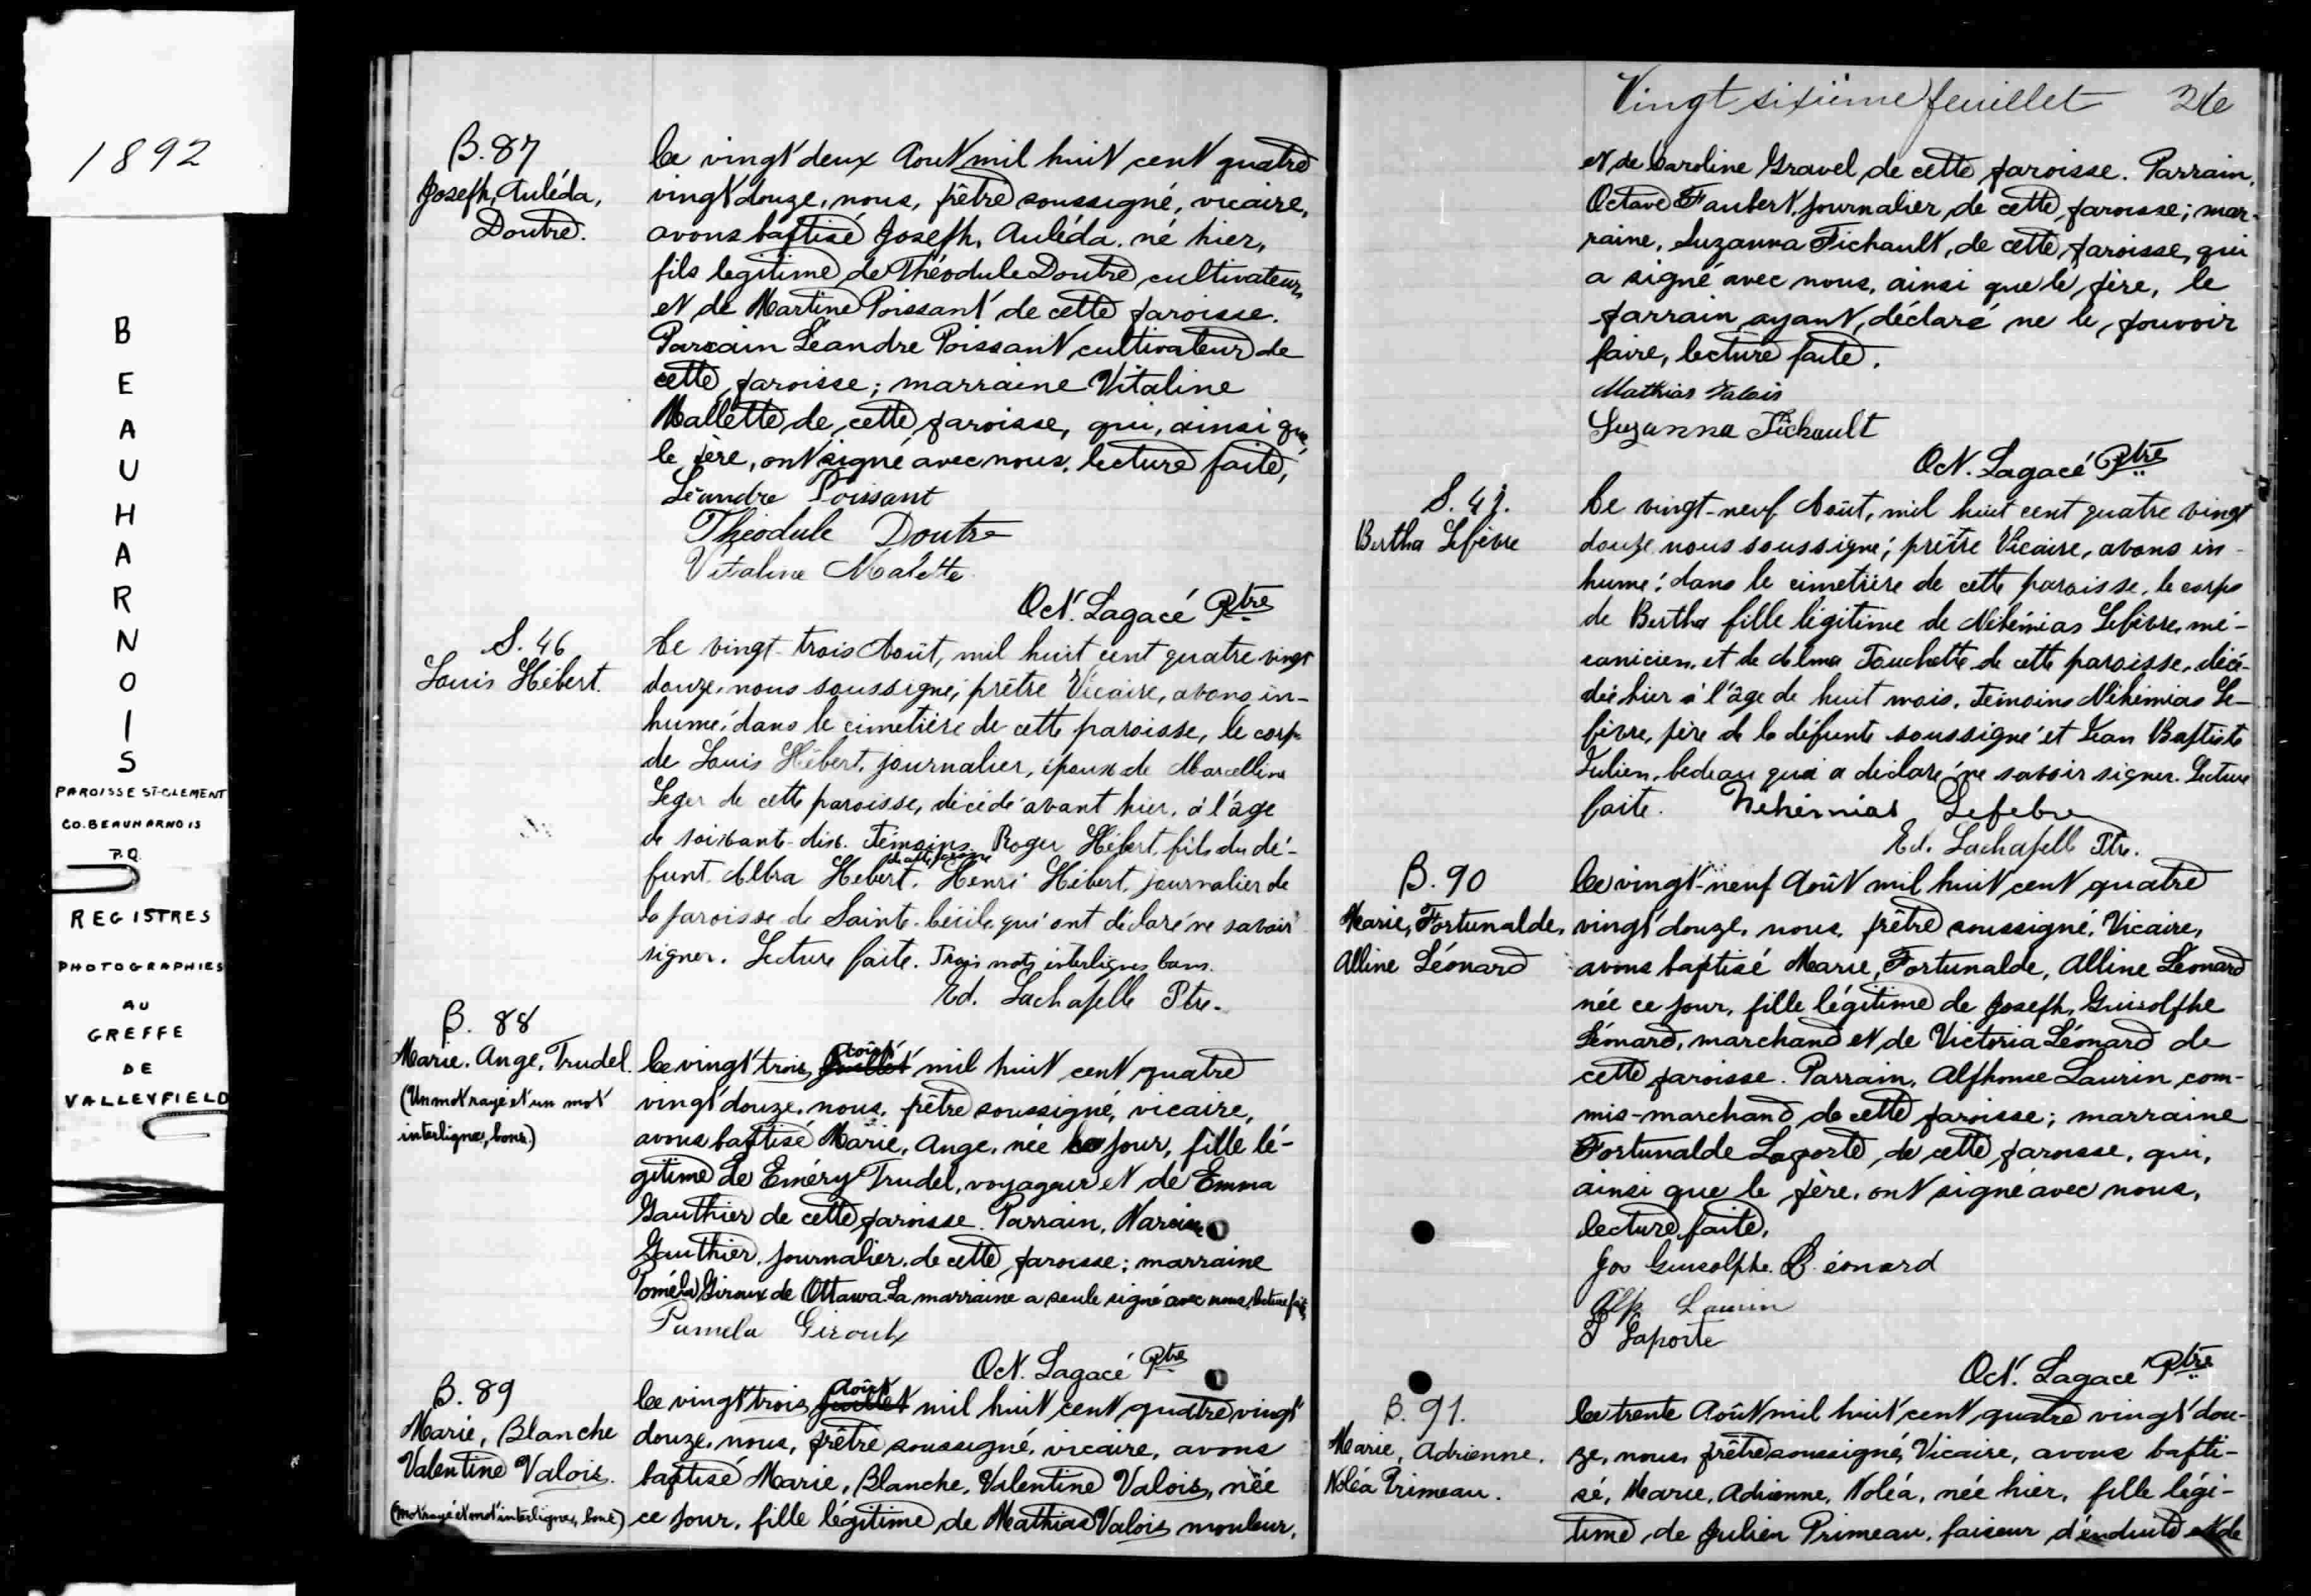 1892
B
E
A
U
H
A
R
N
O
I
S
PAROISSE ST-CLEMENT
CO. BEAUHARNOIS
P.Q.
REGISTRES
PHOTOGRAPHIES
AU
GREFFE
DE
VALLEYFIELD
B. 87
Joseph, Auléda,
Doutre.
Ce vingt deux Aout mil huit cent quatre
vingt douze, nous, prêtre soussigné, vicaire,
avons baptisé Joseph, Auléda, né hier,
fils legitime de Théodule Doutre cultivateur,
et de Martine Poissant de cette paroisse.
Parrain Léandre Poissant cultivateur de
cette paroisse; marraine Vitaline
Mallette de cette paroisse, qui, ainsi que
le père, ont signé avec nous, lecture faite,
Léandre Poissant
Théodule Doutre
Vitaline Malette
Oct. Lagacé Ptre
S. 46
Louis Hébert.
Ce vingt-trois Août, mil huit cent quatre vingt
douze, nous soussigné, prêtre Vicaire, avons in-
humé, dans le cimetière de cette paroisse, le corps
de Louis Hébert, journalier, époux de Marcelline
Leger de cette paroisse, décédé avant hier, à l'âge
de soixante-dix. Témoins Roger Hébert, fils du dé-
de cette paroisse
funt Hébert, Henri Hébert, journalier de
la paroisse de Sainte-Cécile qui ont déclaré ne savoir
signer. Lecture faite. Trois mots interlignes bons.
Ed. Lachapelle Ptre.
B. 88
Marie, Ange, Trudel.
(Un mot rayé et un mot
interligne, bons)
Août
Ce vingt trois Juillet mil huit cent quatre
vingt douze, nous, prêtre soussigné, vicaire,
avons baptisé Marie, Ange, née ce jour, fille lé-
gitime de Eméry Trudel, voyageur et de Emma
Gauthier de cette paroisse. Parrain, Narcisse
Gauthier, journalier, de cette paroisse; marraine
Paméla Giroux de Ottawa. La marraine a seule signé avec nous, lecture faite,
Pamela Giroulx
Oct. Lagacé Ptre
B. 89
Marie, Blanche
Valentine Valois.
(Mot rayé et mot interligne, bons)
Août
Ce vingt trois Juillet mil huit cent quatre vingt
douze, nous, prêtre soussigné, vicaire, avons
baptisé Marie, Blanche, Valentine Valois, née
ce jour, fille légitime de Mathias Valois mouleur,
Vingt sixième feuillet 26
et de Caroline Gravel de cette paroisse. Parrain,
Octave Faubert, journalier, de cette paroisse; mar-
raine, Suzanna Pichault, de cette paroisse, qui
a signé avec nous, ainsi que le père, le
parrain ayant déclaré ne le pouvoir
faire, lecture faite.
Mathias Valois
Suzanna Pichault
Oct. Lagacé Ptre
S. 47.
Bertha Lefèvre
Ce vingt-neuf Août, mil huit cent quatre vingt
douze, nous soussigné, prêtre Vicaire, avons in-
humé, dans le cimetière de cette paroisse, le corps
de Bertha fille légitime de Néhémias Lefèvre, mé-
canicien, et de Touchette de cette paroisse, décé-
dée hier à l'âge de huit mois. Témoins Néhémias Le-
fèvre, père de la défunte soussigné et Jean Baptiste
Julien, bedeau qui a déclaré ne savoir signer. Lecture
faite. Nehémias Lefebre
Ed. Lachapelle Ptr.
B. 90
Marie, Fortunalde,
Alline Léonard
Ce vingt-neuf Août mil huit cent quatre
vingt douze, nous, prêtre soussigné, Vicaire,
avons baptisé Marie, Fortunalde, Alline Léonard
née ce jour, fille légitime de Joseph, Guisolphe
Léonard, marchand et de Victoria Léonard de
cette paroisse. Parrain, Alphonse Laurin, com-
mis-marchand de cette paroisse; marraine
Fortunalde Laporte, de cette paroisse, qui,
ainsi que le père, ont signé avec nous,
lecture faite,
Jos Guisolphe Léonard
Alp. Laurin
F Laporte
Oct. Lagacé Ptre
B. 91.
Marie, Adrienne,
Noléa Primeau.
Ce trente Août mil huit cent quatre vingt dou-
ze, nous, prêtre soussigné, Vicaire, avons bapti-
sé, Marie, Adrienne, Noléa, née hier, fille légi-
time de Julien Primeau, faiseur d'enduits et de